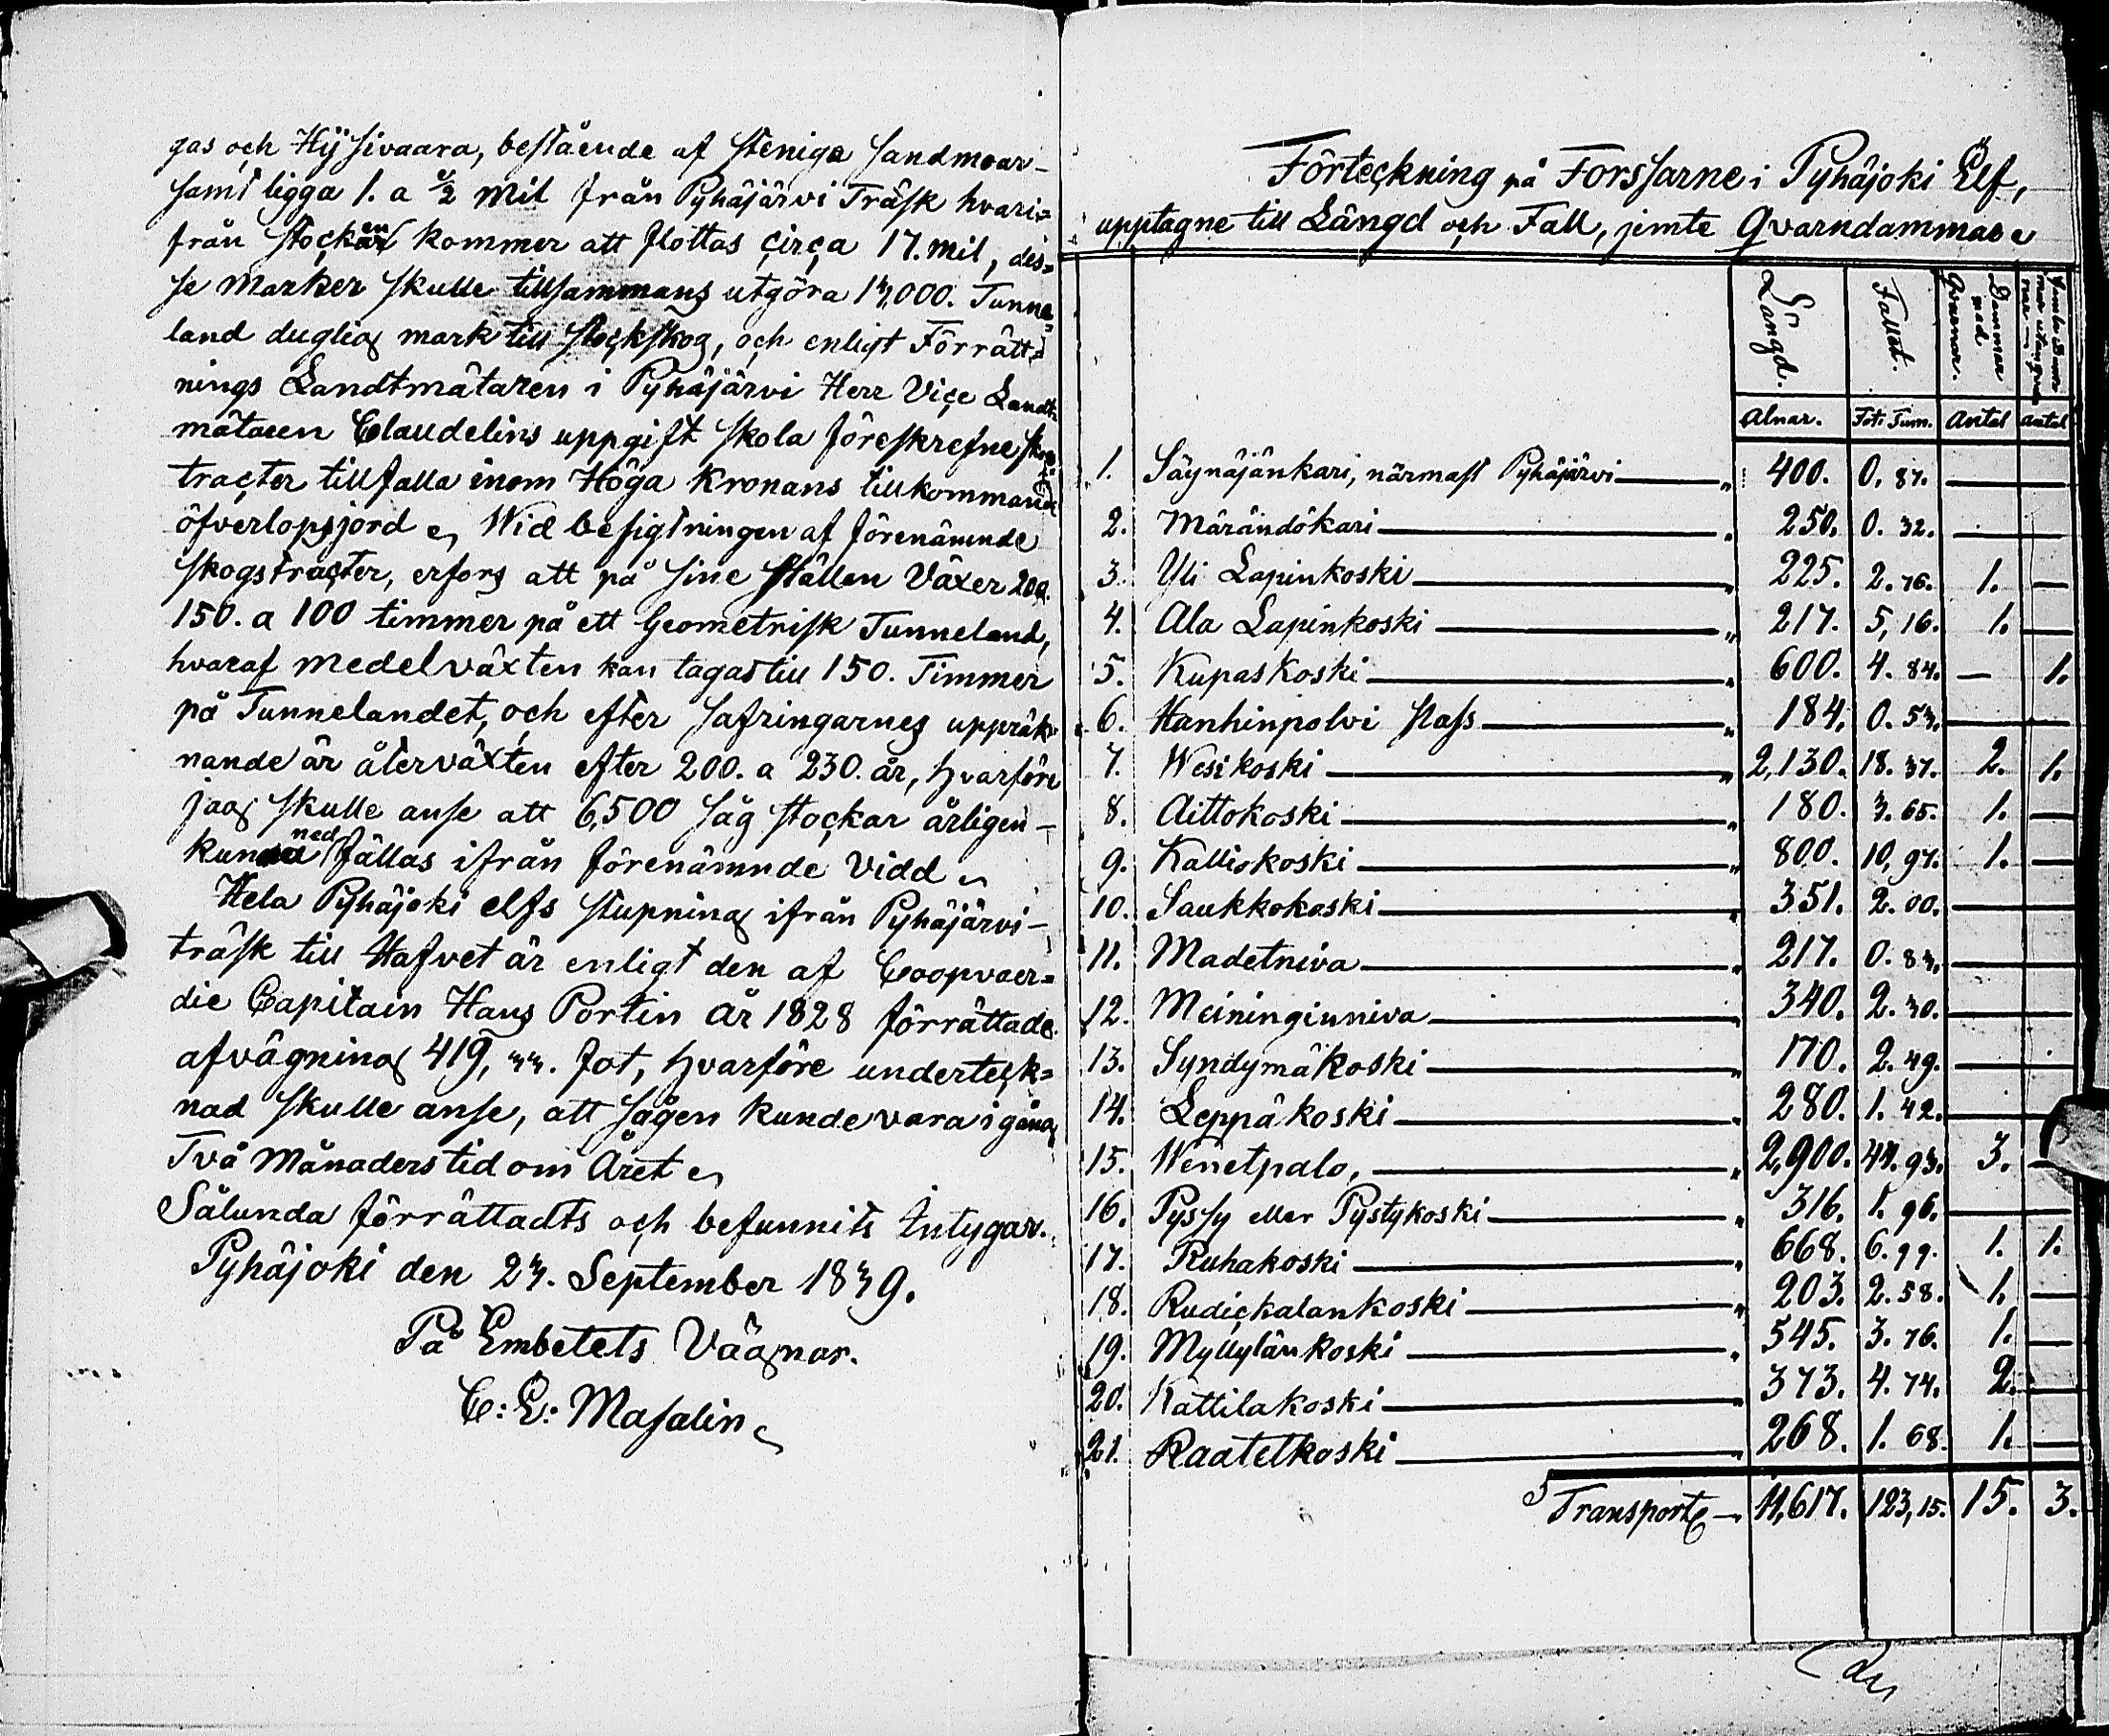 gas och Hijsivaara, bestående af steniga Sandmoar-
samt ligga 1. a ½ Mil från Pyhäjärvi Träsk hvari=
från stocken kommer att flottas circa 17. mil, des=
se Marker skulle tillsammans utgöra 13,000. Tunne=
land duglig mark till stockskog, och enligt Förrätt=
nings Landtmätaren i Pyhäjärvi Herr Vice Landt=
mätaren Claudelins uppgift skola föreskrefne
tracter tillfalla inom Höga Kronans tillkommande
öfverlopsjord. Wid besigtningen af förenämnde
skogstracter, erfors att på sine ställen Växer 200.
150. a 100 timmer på ett Geometrisk Tunneland,
hvaraf medelväxten kan tagas till 150. Timmer
på Tunnelandet, och efter Safringarnes uppräk-
nande är återväxten efter 200. a 230. år, hvarföre
jag skulle anse att 6,500 såg stockar årligen-
kunna nedfällas ifrån förenämnde vidd.
Hela Pyhäjoki elfs stupning ifrån Pyhäjärvi-
träsk till Hafvet är enligt den af Coopvaer=
die Capitain Hans Portin År 1828 förrättade
afvägning 419,33. fot, hvarföre underteck=
nad skulle anse, att sågen kunde vara i gång
Två Månaders tid om Året.
Sålunda förrättadts och befunnits Intygar.
Pyhäjoki den 23. September 1839.
På Embetets Vägnar.
C: E: Masalin
Förteckning på Forssarne i Pyhäjoki Elf,
upptagne till Längd och Fall, jemte Qvarndammar
Längd. Fallet. Dammar med Qvarnar.
Alnar. Fot. Tum. Antal Antal
1. Säynäjänkari, närmast Pyhäjärvi — 400. 0.87. — —
2. Märändökari — 250. 0.32. — —
3. Yli Lapinkoski — 225. 2.76. 1. —
4. Ala Lapinkoski — 217. 5,16. 1. —
5. Kupaskoski — 600. 4.84. — 1.
6. Hanhinpolvi stafs — 184. 0.53. — —
7. Wesikoski — 2,130. 18.37. 2. 1.
8. Aittokoski — 180. 3.65. 1. —
9. Kalliokoski — 800. 10,97. 1. —
10. Saukkokoski — 351. 2.00. — —
11. Madetniva — 217. 0.83. — —
12. Meininginniva — 340. 2.30. — —
13. Syndymäkoski — 170. 2.49. — —
14. Leppäkoski — 280. 1.42. — —
15. Wenetpalo, — 2,900. 44.93. 3. —
16. Pyssy eller Pystykoski — 316. 1.96. — —
17. Ruhakoski — 668. 6.99. 1. 1.
18. Rudickalankoski — 203. 2.58. 1. —
19. Myllylänkoski — 545. 3.76. 1. —
20. Kattilakoski — 373. 4.74. 2. —
21. Raatetkoski — 268. 1.68. 1. —
Transport — 11,617. 123,15. 15. 3.